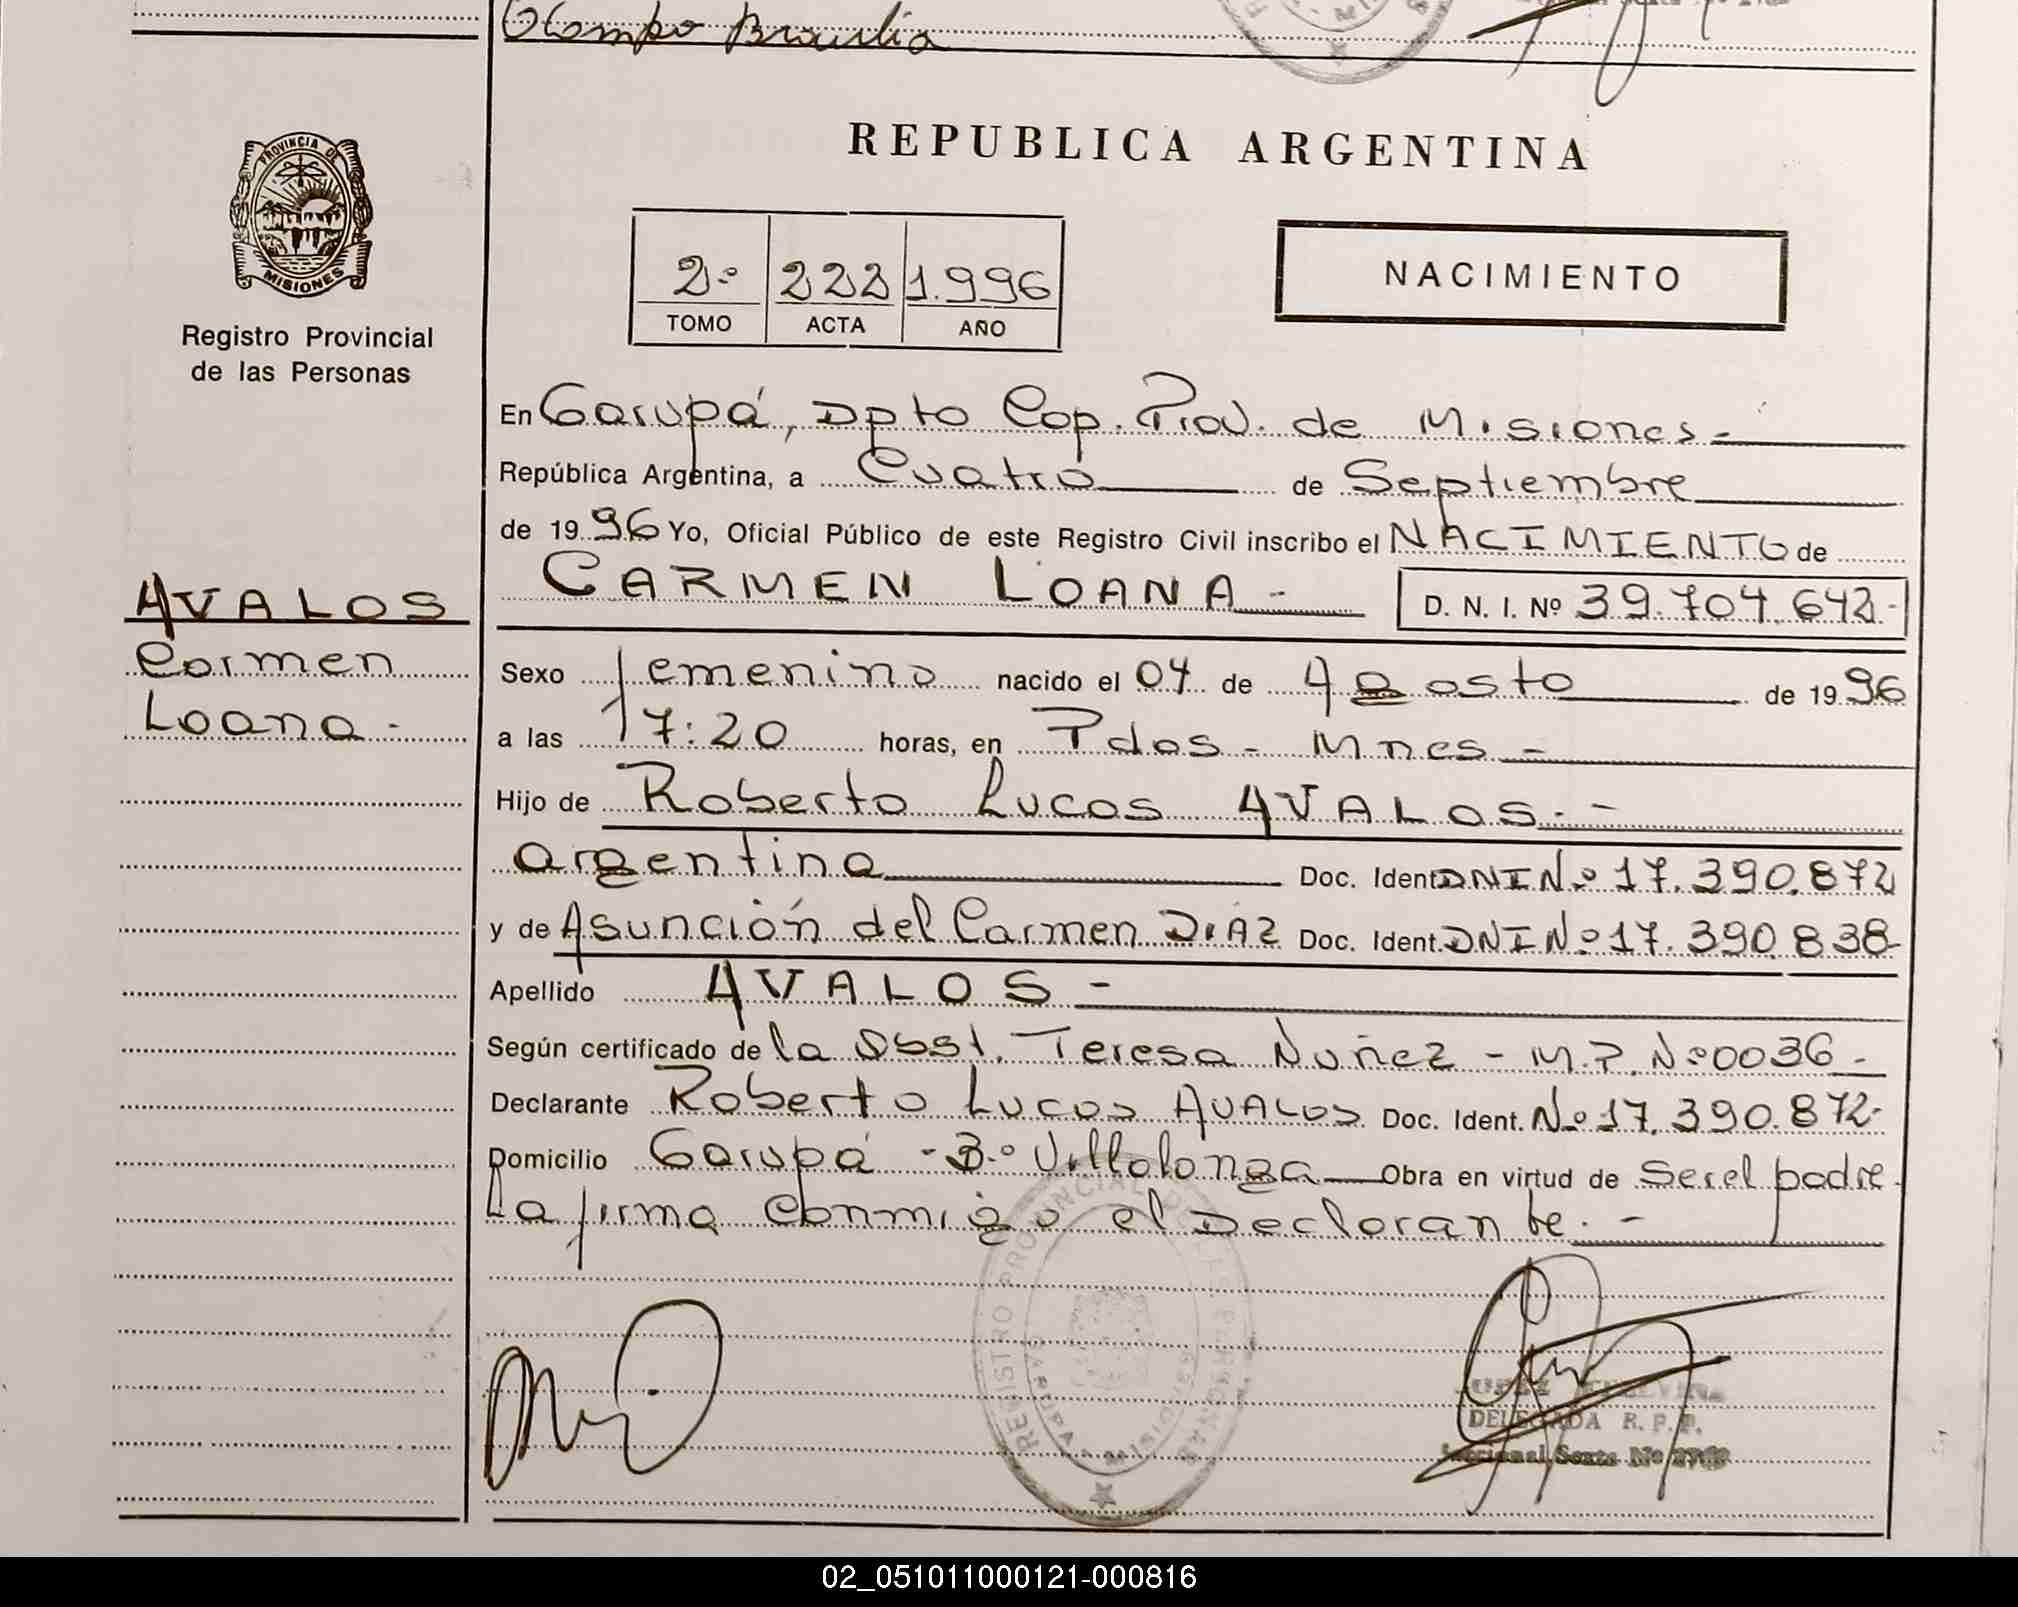 Ocampo Brasilia
REPUBLICA ARGENTINA
PROVINCIA DE
MISIONES
Registro Provincial
de las Personas
2º 222 1.996
TOMO ACTA AÑO
NACIMIENTO
En Garupá, Dpto Cap. Prov. de Misiones -
República Argentina, a Cuatro de Septiembre
de 1996 Yo, Oficial Público de este Registro Civil inscribo el NACIMIENTO de
CARMEN LOANA - D. N. I. Nº 39.704.642-
AVALOS
Carmen
Loana -
Sexo femenino nacido el 04 de Agosto de 1996
a las 17:20 horas, en Pdas - Mnes -
Hijo de Roberto Lucas AVALOS. -
argentina Doc. Ident. DNI Nº 17.390.872
y de Asunción del Carmen DIAZ Doc. Ident. DNI Nº 17.390.838-
Apellido AVALOS -
Según certificado de la Obst. Teresa Nuñez - M.P. Nº 0036 -
Declarante Roberto Lucas AVALOS Doc. Ident. Nº 17.390.872-
Domicilio Garupá - Bº Villalonga Obra en virtud de ser el padre.
La firma conmigo el Declarante. -
REGISTRO PROVINCIAL DE LAS PERSONAS
DELEGADA R. P. P.
Seccional Sexta Nº
02_051011000121-000816